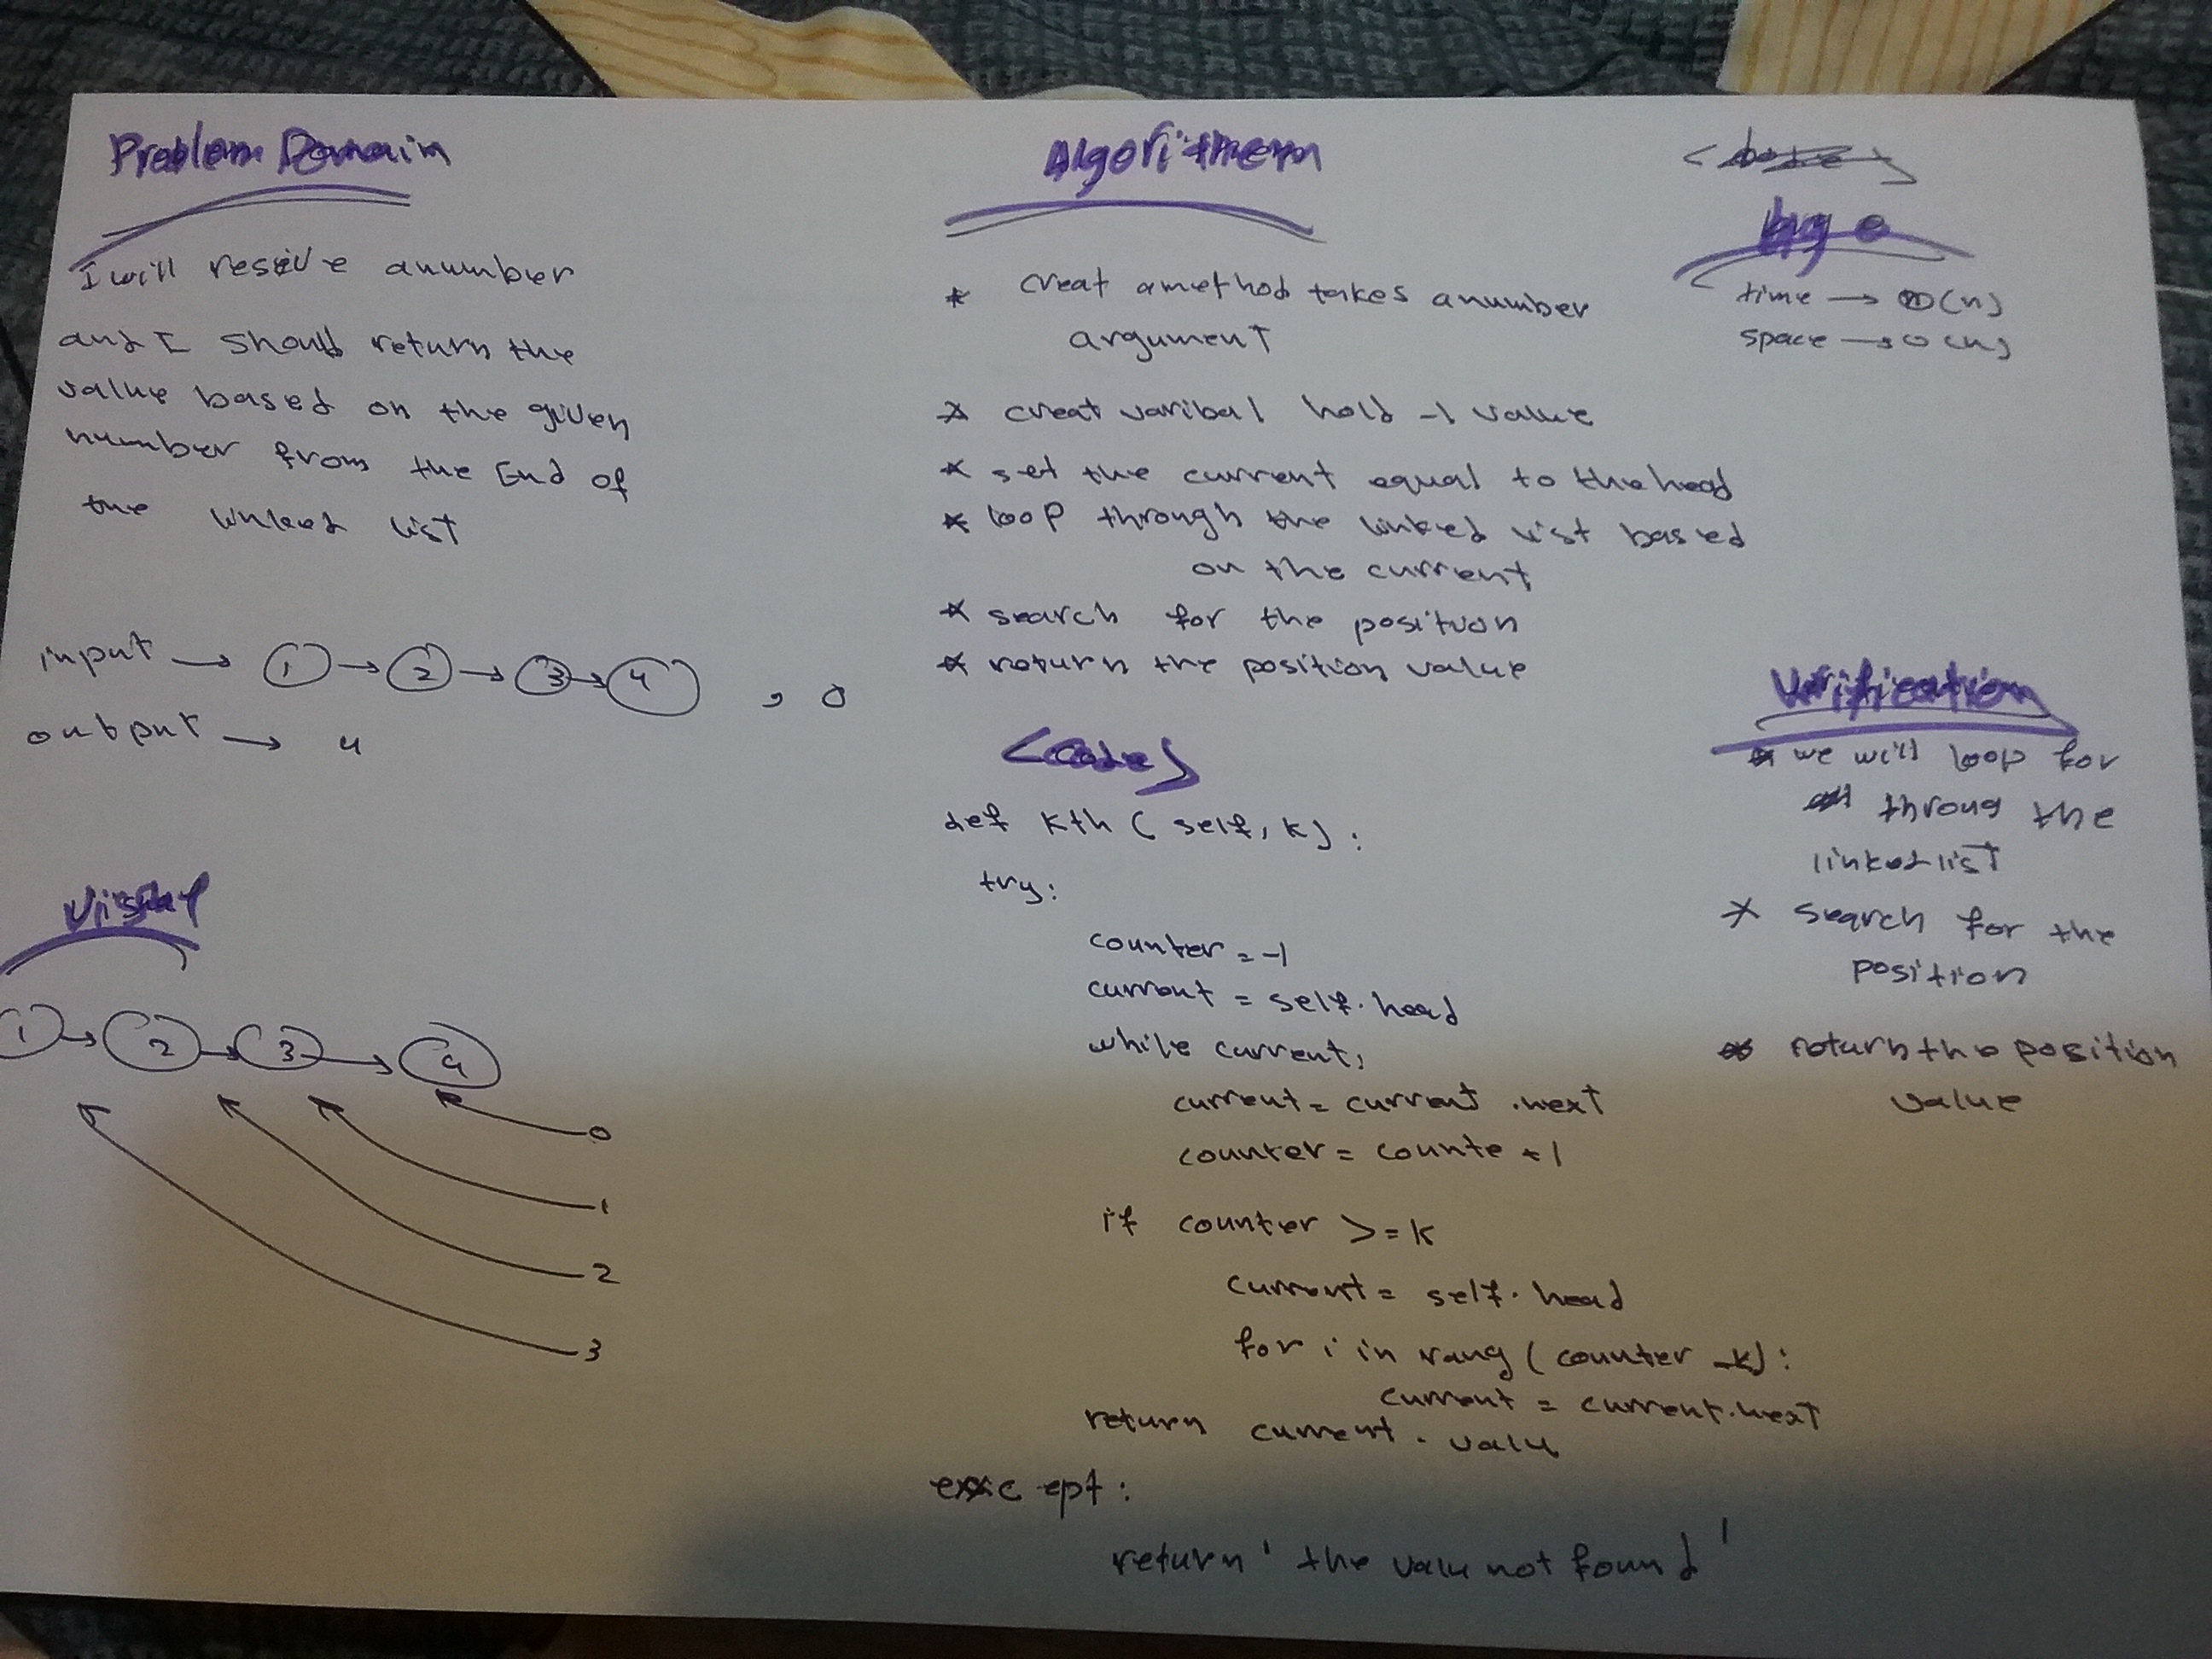 Problem Domain
I will reseive anumber
and I should return the
value based on the given
number from the End of
the linked list
input → 1 → 2 → 3 → 4 , 0
output → 4
Visual
1 → 2 → 3 → 4
0
1
2
3
Algorithem
* creat amethod takes anumber
argument
* creat varibal hold -1 value
* set the current equal to the head
* loop through the linked list based
on the current
* search for the position
* return the position value
<Code>
def kth (self, k):
try:
counter = -1
current = self.head
while current:
current = current.next
counter = counte +1
if counter >= k
current = self.head
for i in rang (counter -k):
current = current.next
return current.valu
except:
return 'the valu not found'
big o
time → O(n)
space → O(n)
Verification
* we will loop for
throug the
linked list
* search for the
position
* return the position
value